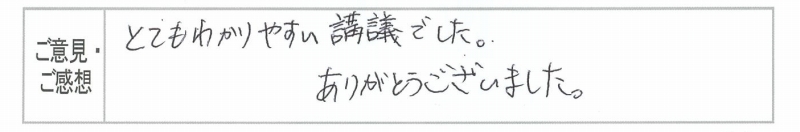 ご意見・
ご感想
とてもわかりやすい講議でした。
ありがとうございました。